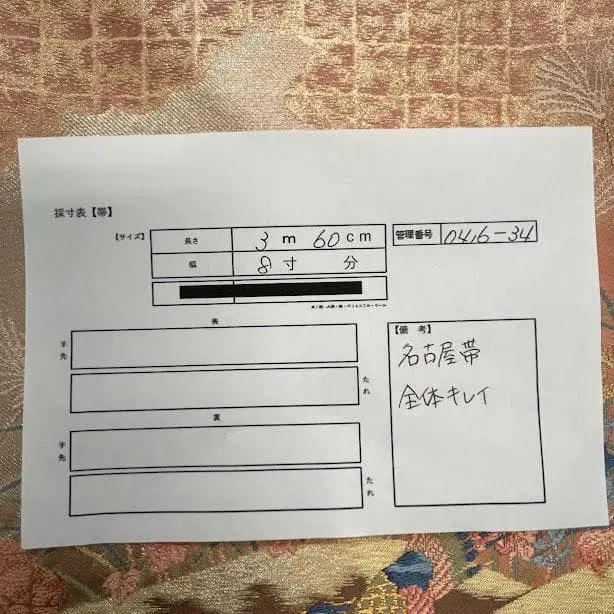 採寸表【帯】
【サイズ】 長さ 3 m 60 cm 管理番号 04,6-34
幅 8 寸 分
表
手先
たれ
裏
手先
たれ
【備 考】
名古屋帯
全体キレイ